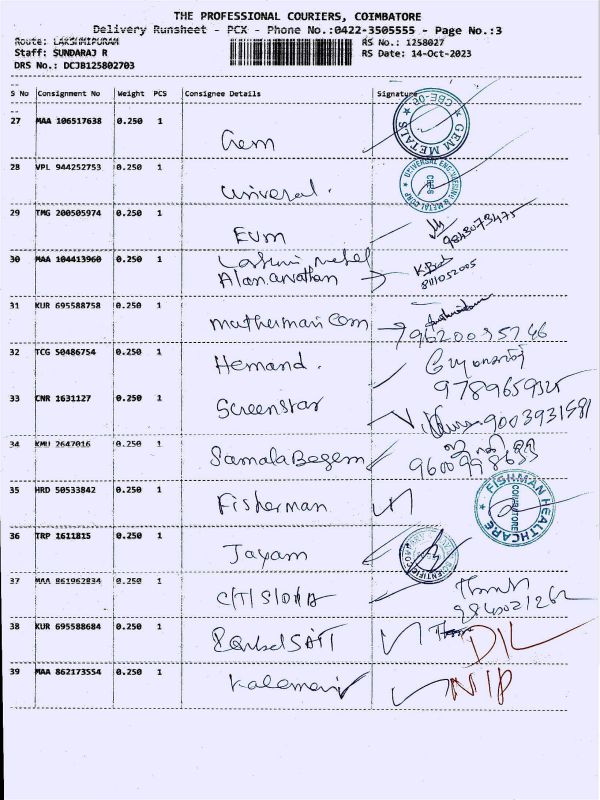 THE PROFESSIONAL COURIERS, COIMBATORE
Delivery Runsheet - PCX - Phone No.:0422-3505555 - Page No.:3
Route: LAKSHMIPURAM RS No.: 1258027
Staff: SUNDARAJ R RS Date: 14-Oct-2023
DRS No.: DCJB125802703
S No Consignment No Weight PCS Consignee Details Signature
27 MAA 106517638 0.250 1 Gem GEM METALS CBE-02
28 VPL 944252753 0.250 1 Universal. UNIVERSAL ENGINEERING & METAL CORP
29 TMG 200505974 0.250 1 EUM 9843073475
30 MAA 104413960 0.250 1 Laxmi metal
8111052005
31 KUR 695588758 0.250 1 mutherman Com
32 TCG 50486754 0.250 1 Hemand. 9789659325
33 CNR 1631127 0.250 1 Screenstar 9003931581
34 KMU 2647016 0.250 1 Samala Begem
35 HRD 50533842 0.250 1 Fisherman FISHMAN HEALTHCARE COIMBATORE
36 TRP 1611815 0.250 1 Jayam
37 MAA 861962834 0.250 1
38 KUR 695588684 0.250 1 DIL
39 MAA 862173554 0.250 1 Kalamani NIP